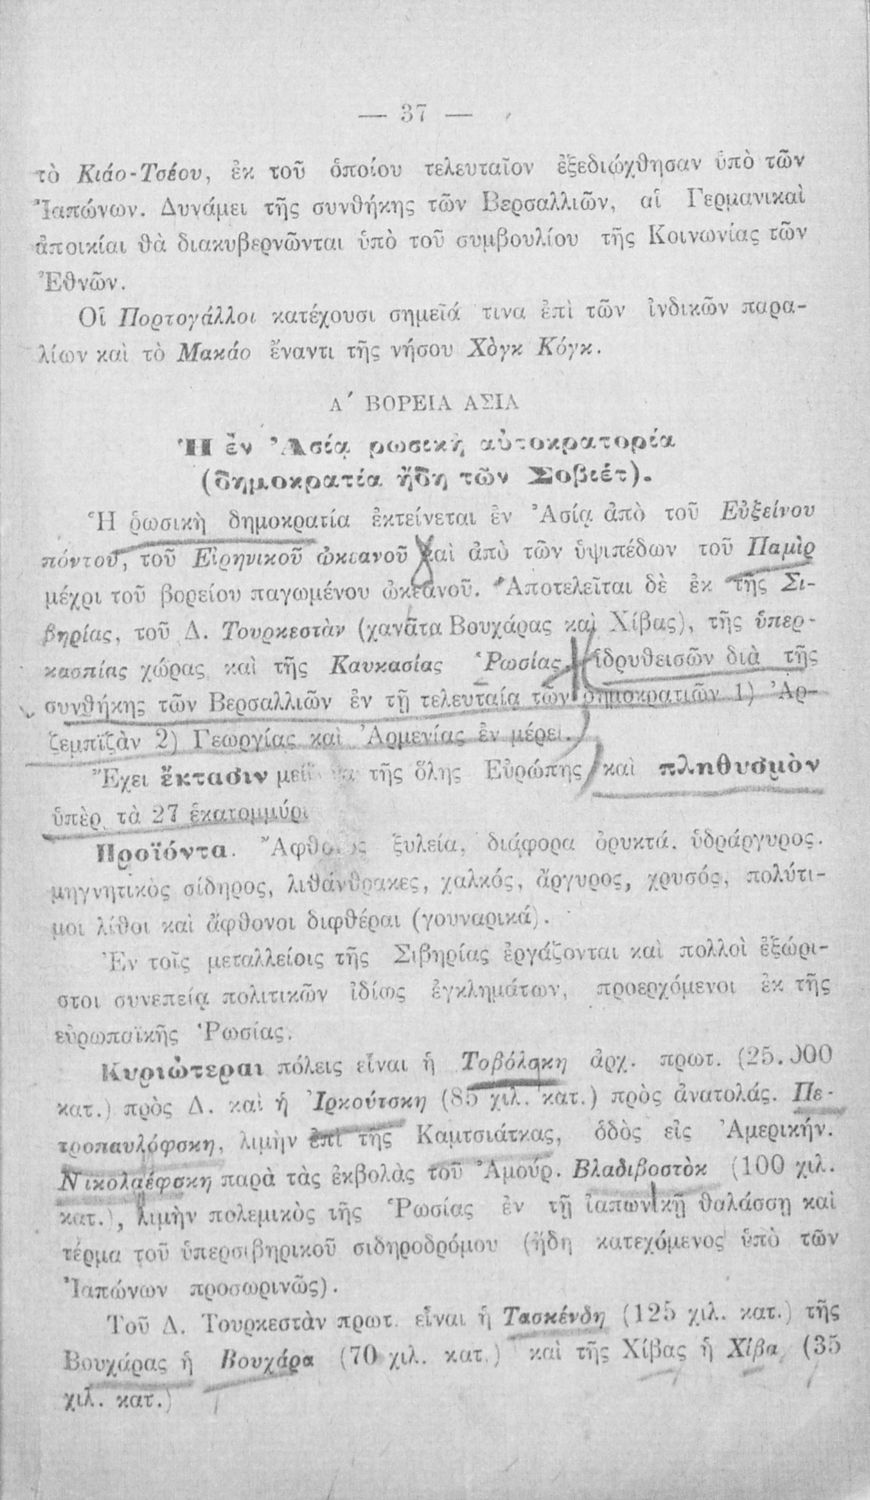 — 37 —
τὸ Κιάο-Τσέου, ἐκ τοῦ ὁποίου τελευταῖον ἐξεδιώχθησαν ὑπὸ τῶν
Ἰαπώνων. Δυνάμει τῆς συνθήκης τῶν Βερσαλλιῶν, αἱ Γερμανικαὶ
ἀποικίαι θὰ διακυβερνῶνται ὑπὸ τοῦ συμβουλίου τῆς Κοινωνίας τῶν
Ἐθνῶν.
Οἱ Πορτογάλλοι κατέχουσι σημεῖά τινα ἐπὶ τῶν ἰνδικῶν παρα-
λίων καὶ τὸ Μακάο ἔναντι τῆς νήσου Χὸγκ Κόγκ.
Α΄ ΒΟΡΕΙΑ ΑΣΙΑ
Ἡ ἐν Ἀσίᾳ ρωσικὴ αὐτοκρατορία
(δημοκρατία ἤδη τῶν Σοβιέτ).
Ἡ ῥωσικὴ δημοκρατία ἐκτείνεται ἐν Ἀσίᾳ ἀπὸ τοῦ Εὐξείνου
πόντου, τοῦ Εἰρηνικοῦ ὠκεανοῦ καὶ ἀπὸ τῶν ὑψιπέδων τοῦ Παμὶρ
μέχρι τοῦ βορείου παγωμένου ὠκεανοῦ. Ἀποτελεῖται δὲ ἐκ τῆς Σι-
βηρίας, τοῦ Δ. Τουρκεστὰν (χανᾶτα Βουχάρας καὶ Χίβας), τῆς ὑπερ-
κασπίας χώρας καὶ τῆς Καυκασίας Ῥωσίας, ἱδρυθεισῶν διὰ τῆς
συνθήκης τῶν Βερσαλλιῶν ἐν τῇ τελευταίᾳ τῶν δημοκρατιῶν 1) Ἀρ-
ζεμπϊζὰν 2) Γεωργίας καὶ Ἀρμενίας ἐν μέρει.
Ἔχει ἔκτασιν τῆς ὅλης Εὐρώπης καὶ πληθυσμὸν
ὑπὲρ τὰ 27 ἑκατομμύρι
Προϊόντα. ξυλεία, διάφορα ὀρυκτά, ὑδράργυρος,
μηγνητικὸς σίδηρος, λιθάνθρακες, χαλκός, ἄργυρος, χρυσός, πολύτι-
μοι λίθοι καὶ ἄφθονοι διφθέραι (γουναρικά).
Ἐν τοῖς μεταλλείοις τῆς Σιβηρίας ἐργάζονται καὶ πολλοὶ ἐξώρι-
στοι συνεπείᾳ πολιτικῶν ἰδίως ἐγκλημάτων, προερχόμενοι ἐκ τῆς
εὐρωπαϊκῆς Ῥωσίας.
Κυριώτεραι πόλεις εἶναι ἡ Τοβόλσκη ἀρχ. πρωτ. (25.000
κατ.) πρὸς Δ. καὶ ἡ Ἰρκούτσκη (85 χιλ. κατ.) πρὸς ἀνατολάς. Πε-
τροπαυλόφσκη, λιμὴν ἐπὶ τῆς Καμτσιάτκας, ὁδὸς εἰς Ἀμερικήν.
Νικολαέφσκη παρὰ τὰς ἐκβολὰς τοῦ Ἀμούρ. Βλαδιβοστὸκ (100 χιλ.
κατ.), λιμὴν πολεμικὸς τῆς Ῥωσίας ἐν τῇ ἰαπωνικῇ θαλάσσῃ καὶ
τέρμα τοῦ ὑπερσιβηρικοῦ σιδηροδρόμου (ἤδη κατεχόμενος ὑπὸ τῶν
Ἰαπώνων προσωρινῶς).
Τοῦ Δ. Τουρκεστὰν πρωτ. εἶναι ἡ Τασκένδη (125 χιλ. κατ.) τῆς
Βουχάρας ἡ Βουχάρα (70 χιλ. κατ.) καὶ τῆς Χίβας ἡ Χίβα (35
χιλ. κατ.)